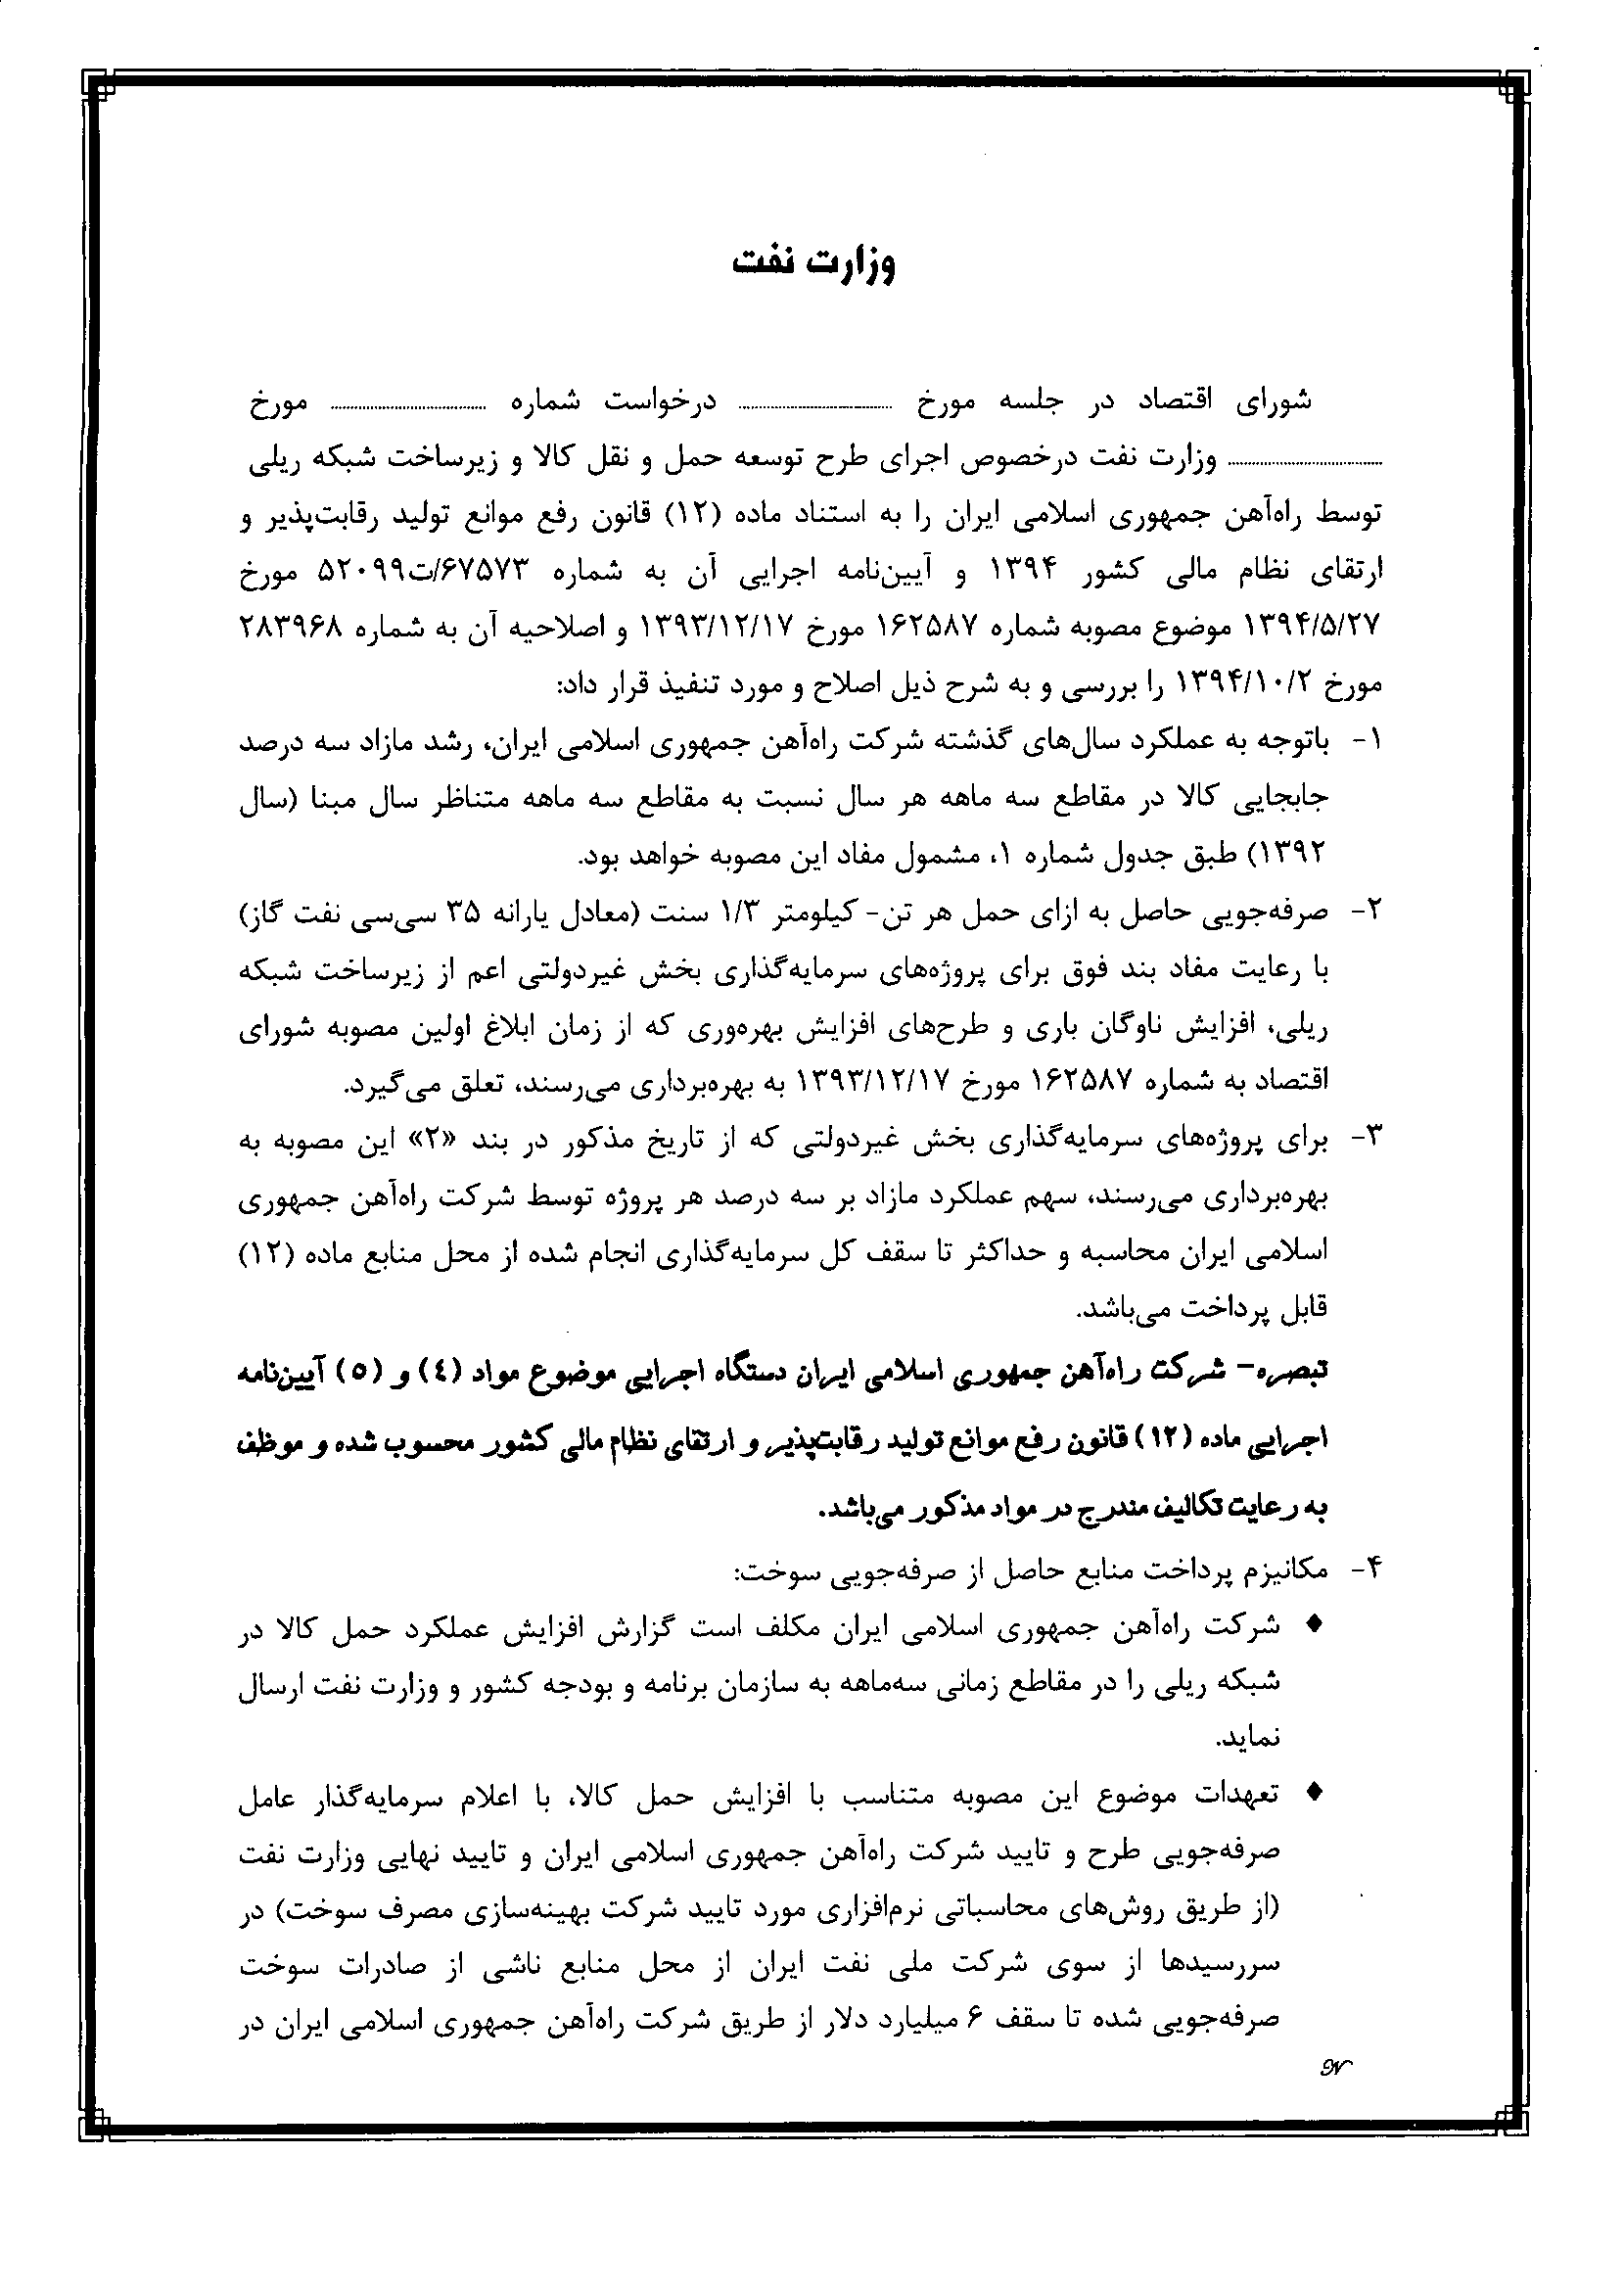 وزارت نفت
شورای اقتصاد در جلسه مورخ .................... درخواست شماره .................... مورخ
.................... وزارت نفت درخصوص اجرای طرح توسعه حمل و نقل کالا و زیرساخت شبکه ریلی
توسط راه‌آهن جمهوری اسلامی ایران را به استناد ماده (۱۲) قانون رفع موانع تولید رقابت‌پذیر و
ارتقای نظام مالی کشور ۱۳۹۴ و آیین‌نامه اجرایی آن به شماره ۶۷۵۷۳/ت۵۲۰۹۹ مورخ
۱۳۹۴/۵/۲۷ موضوع مصوبه شماره ۱۶۲۵۸۷ مورخ ۱۳۹۳/۱۲/۱۷ و اصلاحیه آن به شماره ۲۸۳۹۶۸
مورخ ۱۳۹۴/۱۰/۲ را بررسی و به شرح ذیل اصلاح و مورد تنفیذ قرار داد:
۱- باتوجه به عملکرد سال‌های گذشته شرکت راه‌آهن جمهوری اسلامی ایران، رشد مازاد سه درصد
جابجایی کالا در مقاطع سه ماهه هر سال نسبت به مقاطع سه ماهه متناظر سال مبنا (سال
۱۳۹۲) طبق جدول شماره ۱، مشمول مفاد این مصوبه خواهد بود.
۲- صرفه‌جویی حاصل به ازای حمل هر تن- کیلومتر ۱/۳ سنت (معادل یارانه ۳۵ سی‌سی نفت گاز)
با رعایت مفاد بند فوق برای پروژه‌های سرمایه‌گذاری بخش غیردولتی اعم از زیرساخت شبکه
ریلی، افزایش ناوگان باری و طرح‌های افزایش بهره‌وری که از زمان ابلاغ اولین مصوبه شورای
اقتصاد به شماره ۱۶۲۵۸۷ مورخ ۱۳۹۳/۱۲/۱۷ به بهره‌برداری می‌رسند، تعلق می‌گیرد.
۳- برای پروژه‌های سرمایه‌گذاری بخش غیردولتی که از تاریخ مذکور در بند «۲» این مصوبه به
بهره‌برداری می‌رسند، سهم عملکرد مازاد بر سه درصد هر پروژه توسط شرکت راه‌آهن جمهوری
اسلامی ایران محاسبه و حداکثر تا سقف کل سرمایه‌گذاری انجام شده از محل منابع ماده (۱۲)
قابل پرداخت می‌باشد.
تبصره- شرکت راه‌آهن جمهوری اسلامی ایران دستگاه اجرایی موضوع مواد (٤) و (٥) آیین‌نامه
اجرایی ماده (۱۲) قانون رفع موانع تولید رقابت‌پذیر و ارتقای نظام مالی کشور محسوب شده و موظف
به رعایت تکالیف مندرج در مواد مذکور می‌باشد.
۴- مکانیزم پرداخت منابع حاصل از صرفه‌جویی سوخت:
♦ شرکت راه‌آهن جمهوری اسلامی ایران مکلف است گزارش افزایش عملکرد حمل کالا در
شبکه ریلی را در مقاطع زمانی سه‌ماهه به سازمان برنامه و بودجه کشور و وزارت نفت ارسال
نماید.
♦ تعهدات موضوع این مصوبه متناسب با افزایش حمل کالا، با اعلام سرمایه‌گذار عامل
صرفه‌جویی طرح و تایید شرکت راه‌آهن جمهوری اسلامی ایران و تایید نهایی وزارت نفت
(از طریق روش‌های محاسباتی نرم‌افزاری مورد تایید شرکت بهینه‌سازی مصرف سوخت) در
سررسیدها از سوی شرکت ملی نفت ایران از محل منابع ناشی از صادرات سوخت
صرفه‌جویی شده تا سقف ۶ میلیارد دلار از طریق شرکت راه‌آهن جمهوری اسلامی ایران در